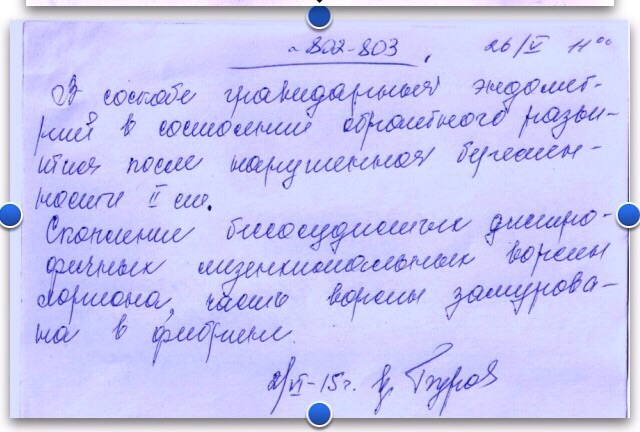 ~802-803, 26/V 11⁰⁰
В соскобе гравидарный эндомет-
рий в состоянии обратного разви-
тия после нарушенной беремен-
ности II ст.
Скопление бессосудистых дистро-
фичных мезенхимальных ворсин
хориона, часть ворсин замурова-
на в фибрин.
2/VI-15г.